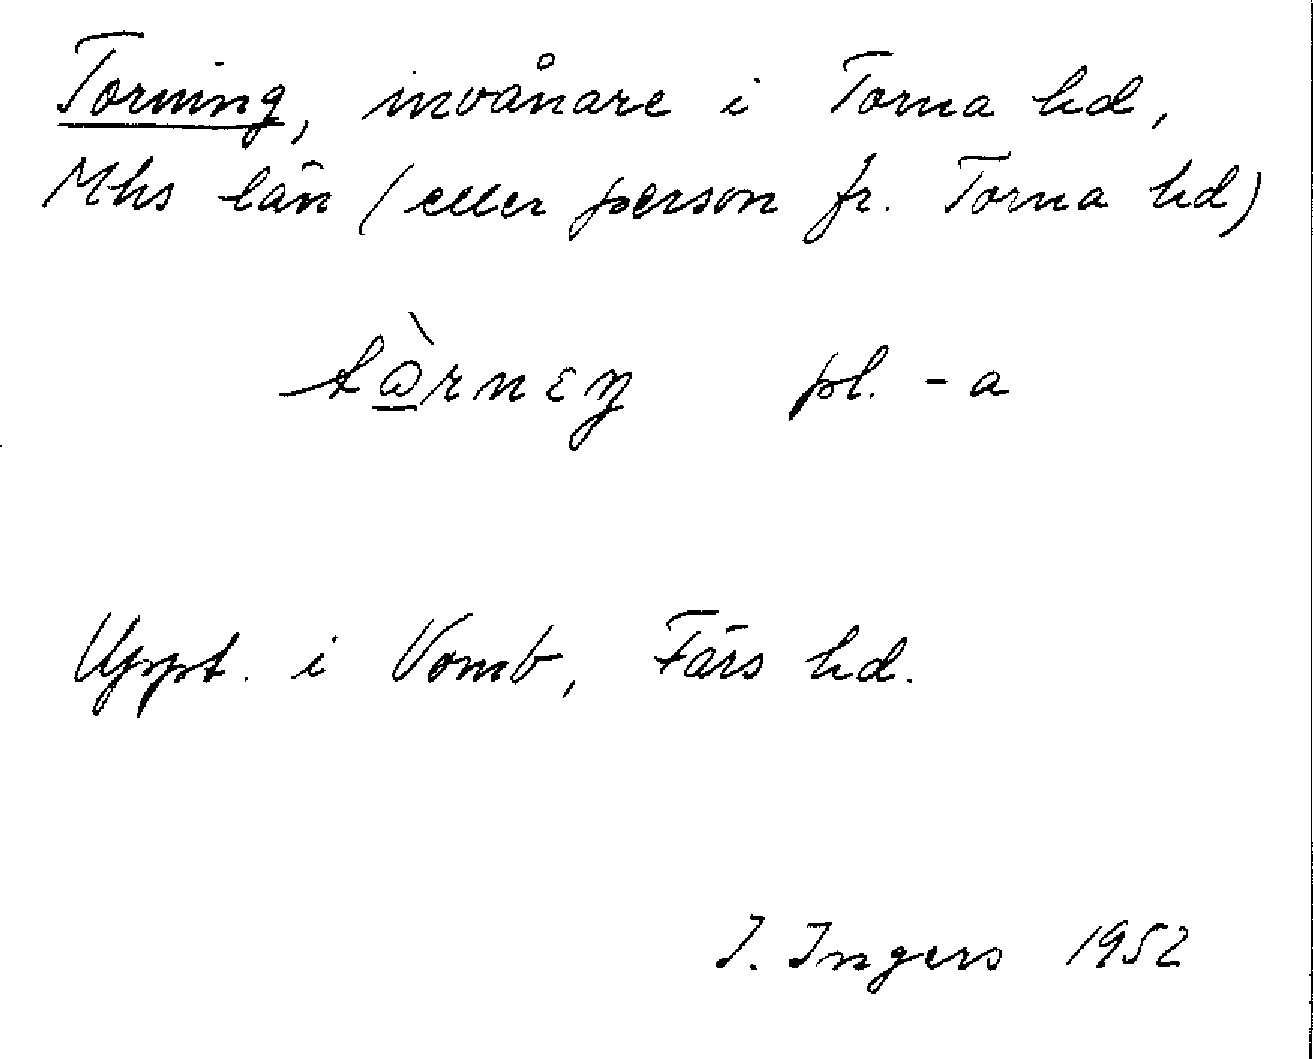 Torning, invånare i Torna hd,
Mhs län (eller person fr. Torna hd)
pl. -a
Uppt. i Vomb, Färs hd.
I. Ingers 1952